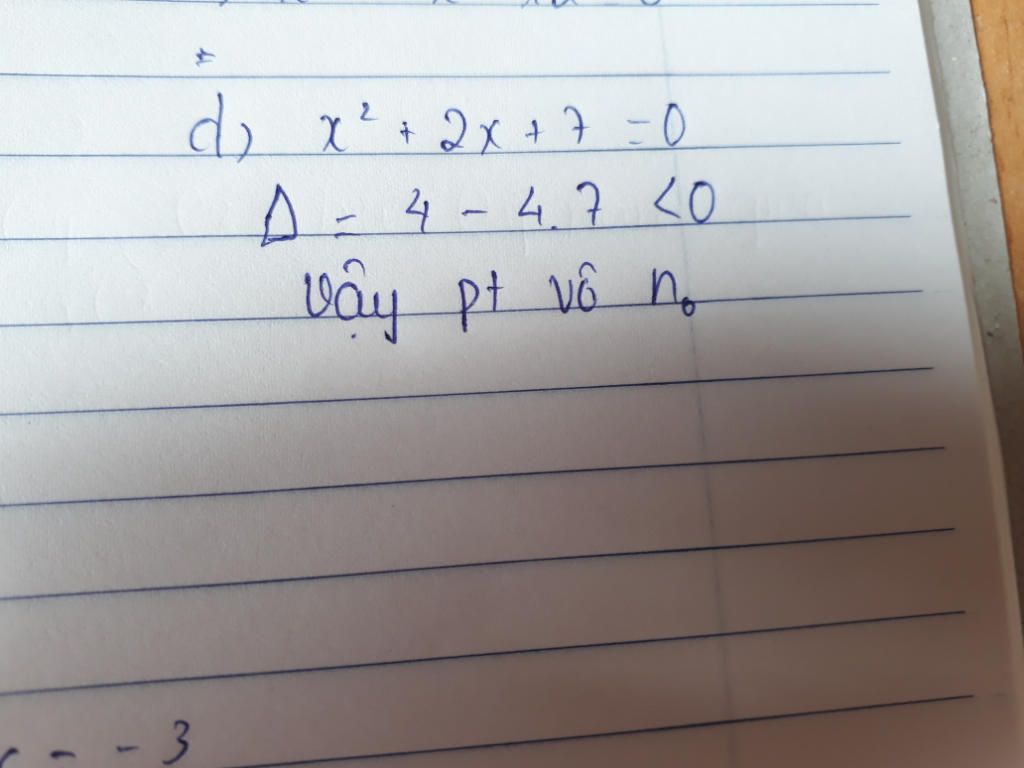 d) x² + 2x + 7 = 0
Δ = 4 - 4.7 < 0
Vậy pt vô n₀
= -3